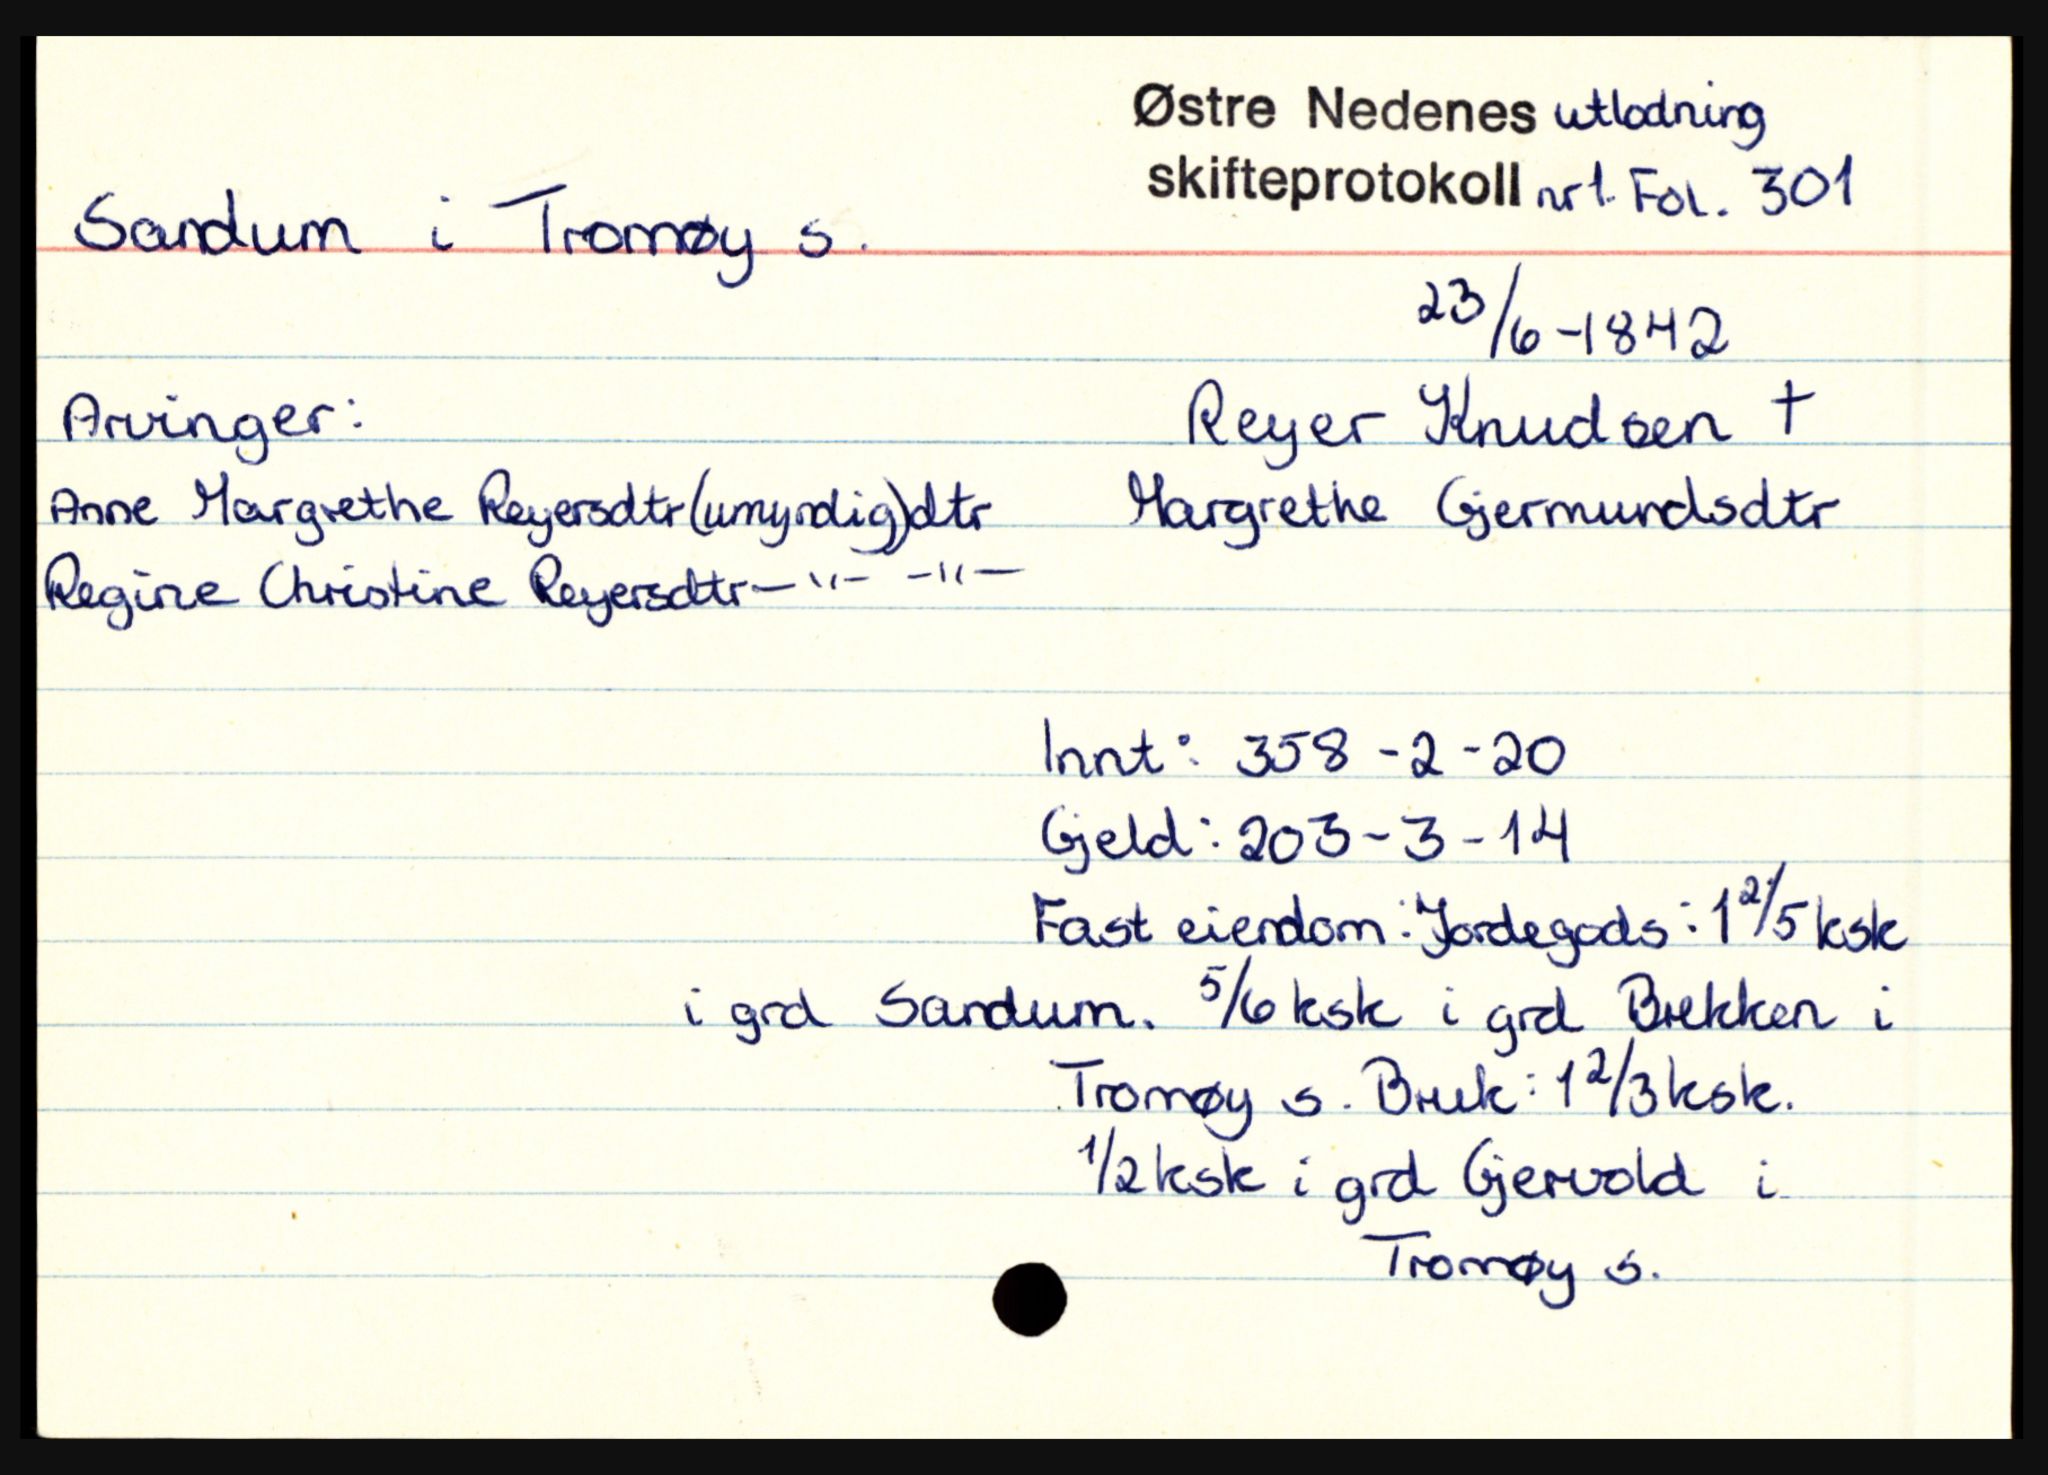 Østre Nedenes utlodning
skifteprotokoll nr 1. Fol. 301
Sandum i Tromøy s.
23/6-1842
Arvinger:
Reyer Knudsen †
Anne Margrethe Reyersdtr (umyndig) dtr
Margrethe Gjermundsdtr
Regine Christine Reyersdtr —"— —"—
Innt: 358-2-20
Gjeld: 203-3-14
Fast eiendom: Jordegods: 1 2/5 ksk
i grd Sandum. 5/6 ksk i grd Brekken i
Tromøy s. Bruk: 1 2/3 ksk.
1/2 ksk i grd Gjervold i
Tromøy s.